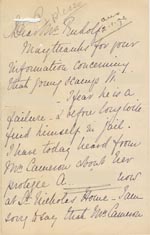 Dear Mr. Rudolf
Many thanks for your
information concerning
that young scamp M
I fear he is a
failure & before long
find himself in jail.
I have today heard from
Mrs Cameron about her
protegee A now
at St Nicholas Home - I am
sorry to say that Mrs Cameron